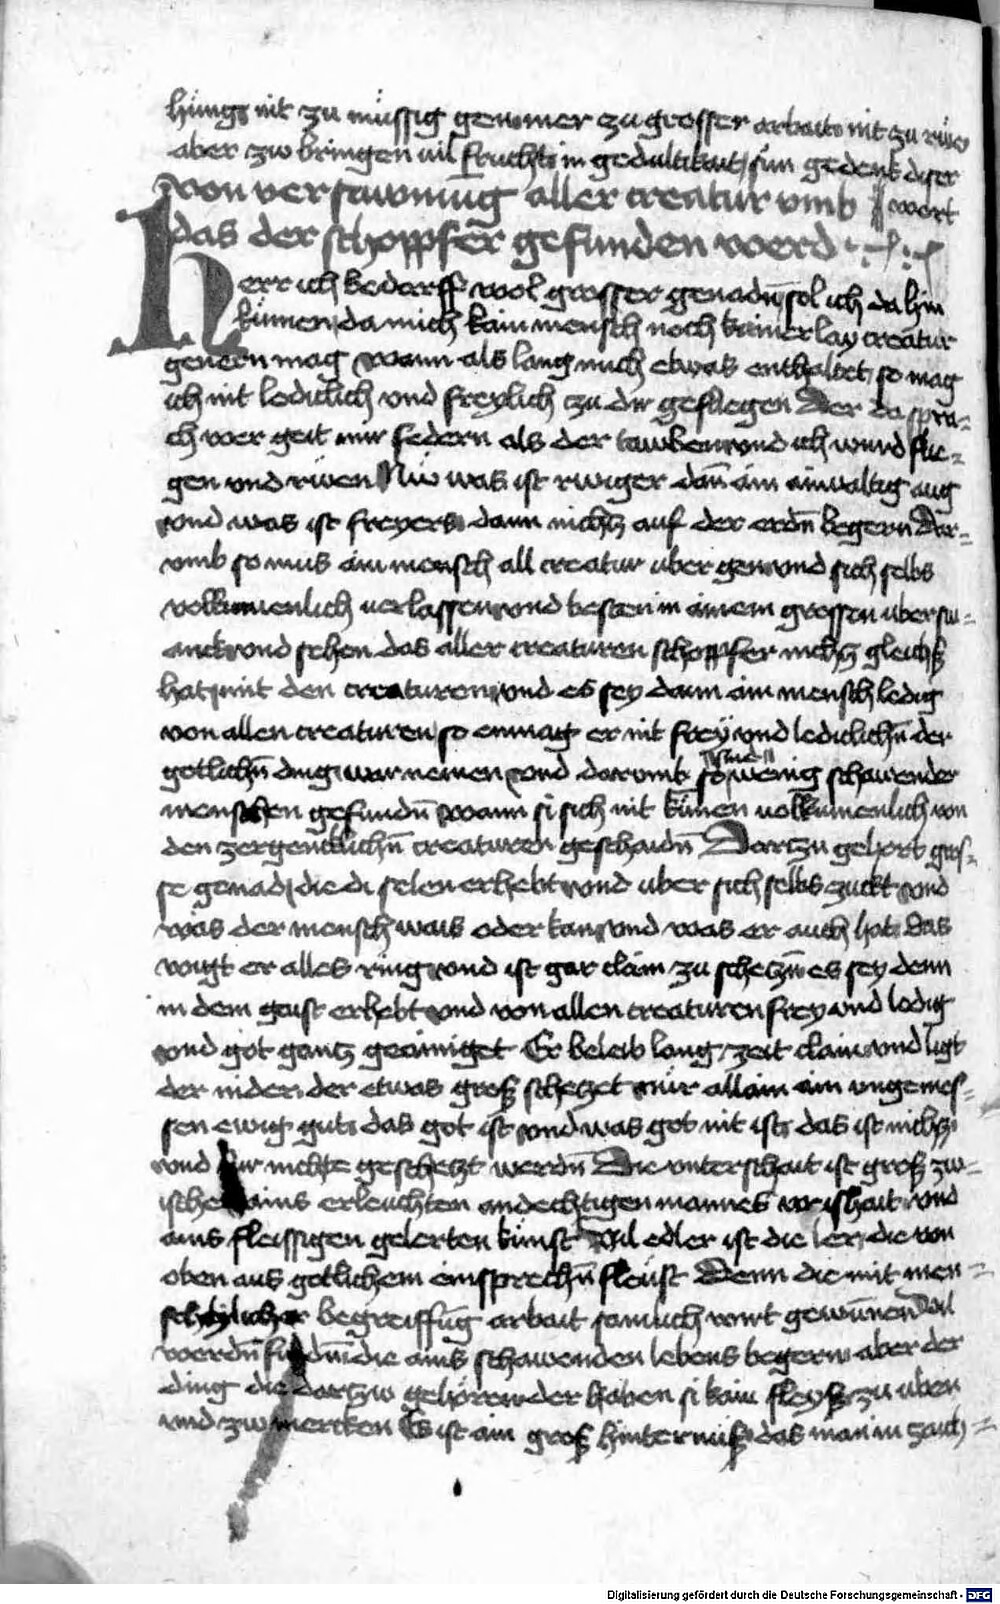 hüngͤ nit zu müssig gen immer zu grosser arbait nit zu rüe
aber zw bringen uil frucht in gedultikait sun gedenk diser
von versawmung aller creatur vmb wort
das der schoppfer gefunden werd
Herr ich bedarff wol grosser genadn̄ sol ich da hin
kümen da mich kain mensch noch kainerlay creatur
generen mag Wann als lang mich etwas enthaltet so mag
ich nit lediclich vnd freylich zu dir gefliegen Der da spra-
ch wer geit mir federn als der tawben vnd ich wurd flie-
gen vnd rwen Nw was ist rwiger dan̄ ain ainualtig aug
vnd was ist freyers dann nichtz auf der erdn̄ begern Dar-
vmb so mus ain mensch all creatur uber gen vnd sich selbs
volkumenlich uerlassen vnd besten in ainem grossen ubersw-
anck vnd sehen das aller creaturen schoppfer nichtz gleichs
hat mit den creaturen vnd es sey dann ain mensch ledig
von allen creaturen so enmag er nit freÿ vnd lediclichn̄ der
gotlichn̄ ding war nemen vnd darvmb so wenig schawender
sind
menschen gefundn̄ Wann si sich nit kümen uolkumenlich von
den zergencklichn̄ creaturen geschaidn̄ Dartzu gehort gros-
se genad die di selen erhebt vnd uber sich selbs zuckt vnd
was der mensch wais oder kan vnd was er auch hat Das
wigt er alles ring vnd ist gar clain zu schetzn̄ es sey denn
in dem geist erhebt vnd von allen creaturen frey vnd ledig
vnd got gantz geainiget Er beleib lang zeit clain vnd ligt
der nider der etwas gross schetzet nür allain ain vngemes-
sen ewig gut das got ist vnd was got nit ist das ist nichtz
vnd für nichte geschetzt werdn̄ Die vnterschait ist gross zw-
ischen ains erleuchten andechtigen mannes weishait vnd
ains fleissigen gelerten künst Vil edler ist die ler die von
oben aus gotlichem einsprechn̄ fleüst Denn die mit men-
schlicher begreiffūg arbait samlich wirt gewunnen Vil
werdn̄ fundn̄ die ains schawenden lebens begern aber der
ding die dartzw gehören der haben si kain fleyss zu uben
vnd zw mercken Es ist ain gross hinternüss das man in zaich-
Digitalisierung gefördert durch die Deutsche Forschungsgemeinschaft - DFG